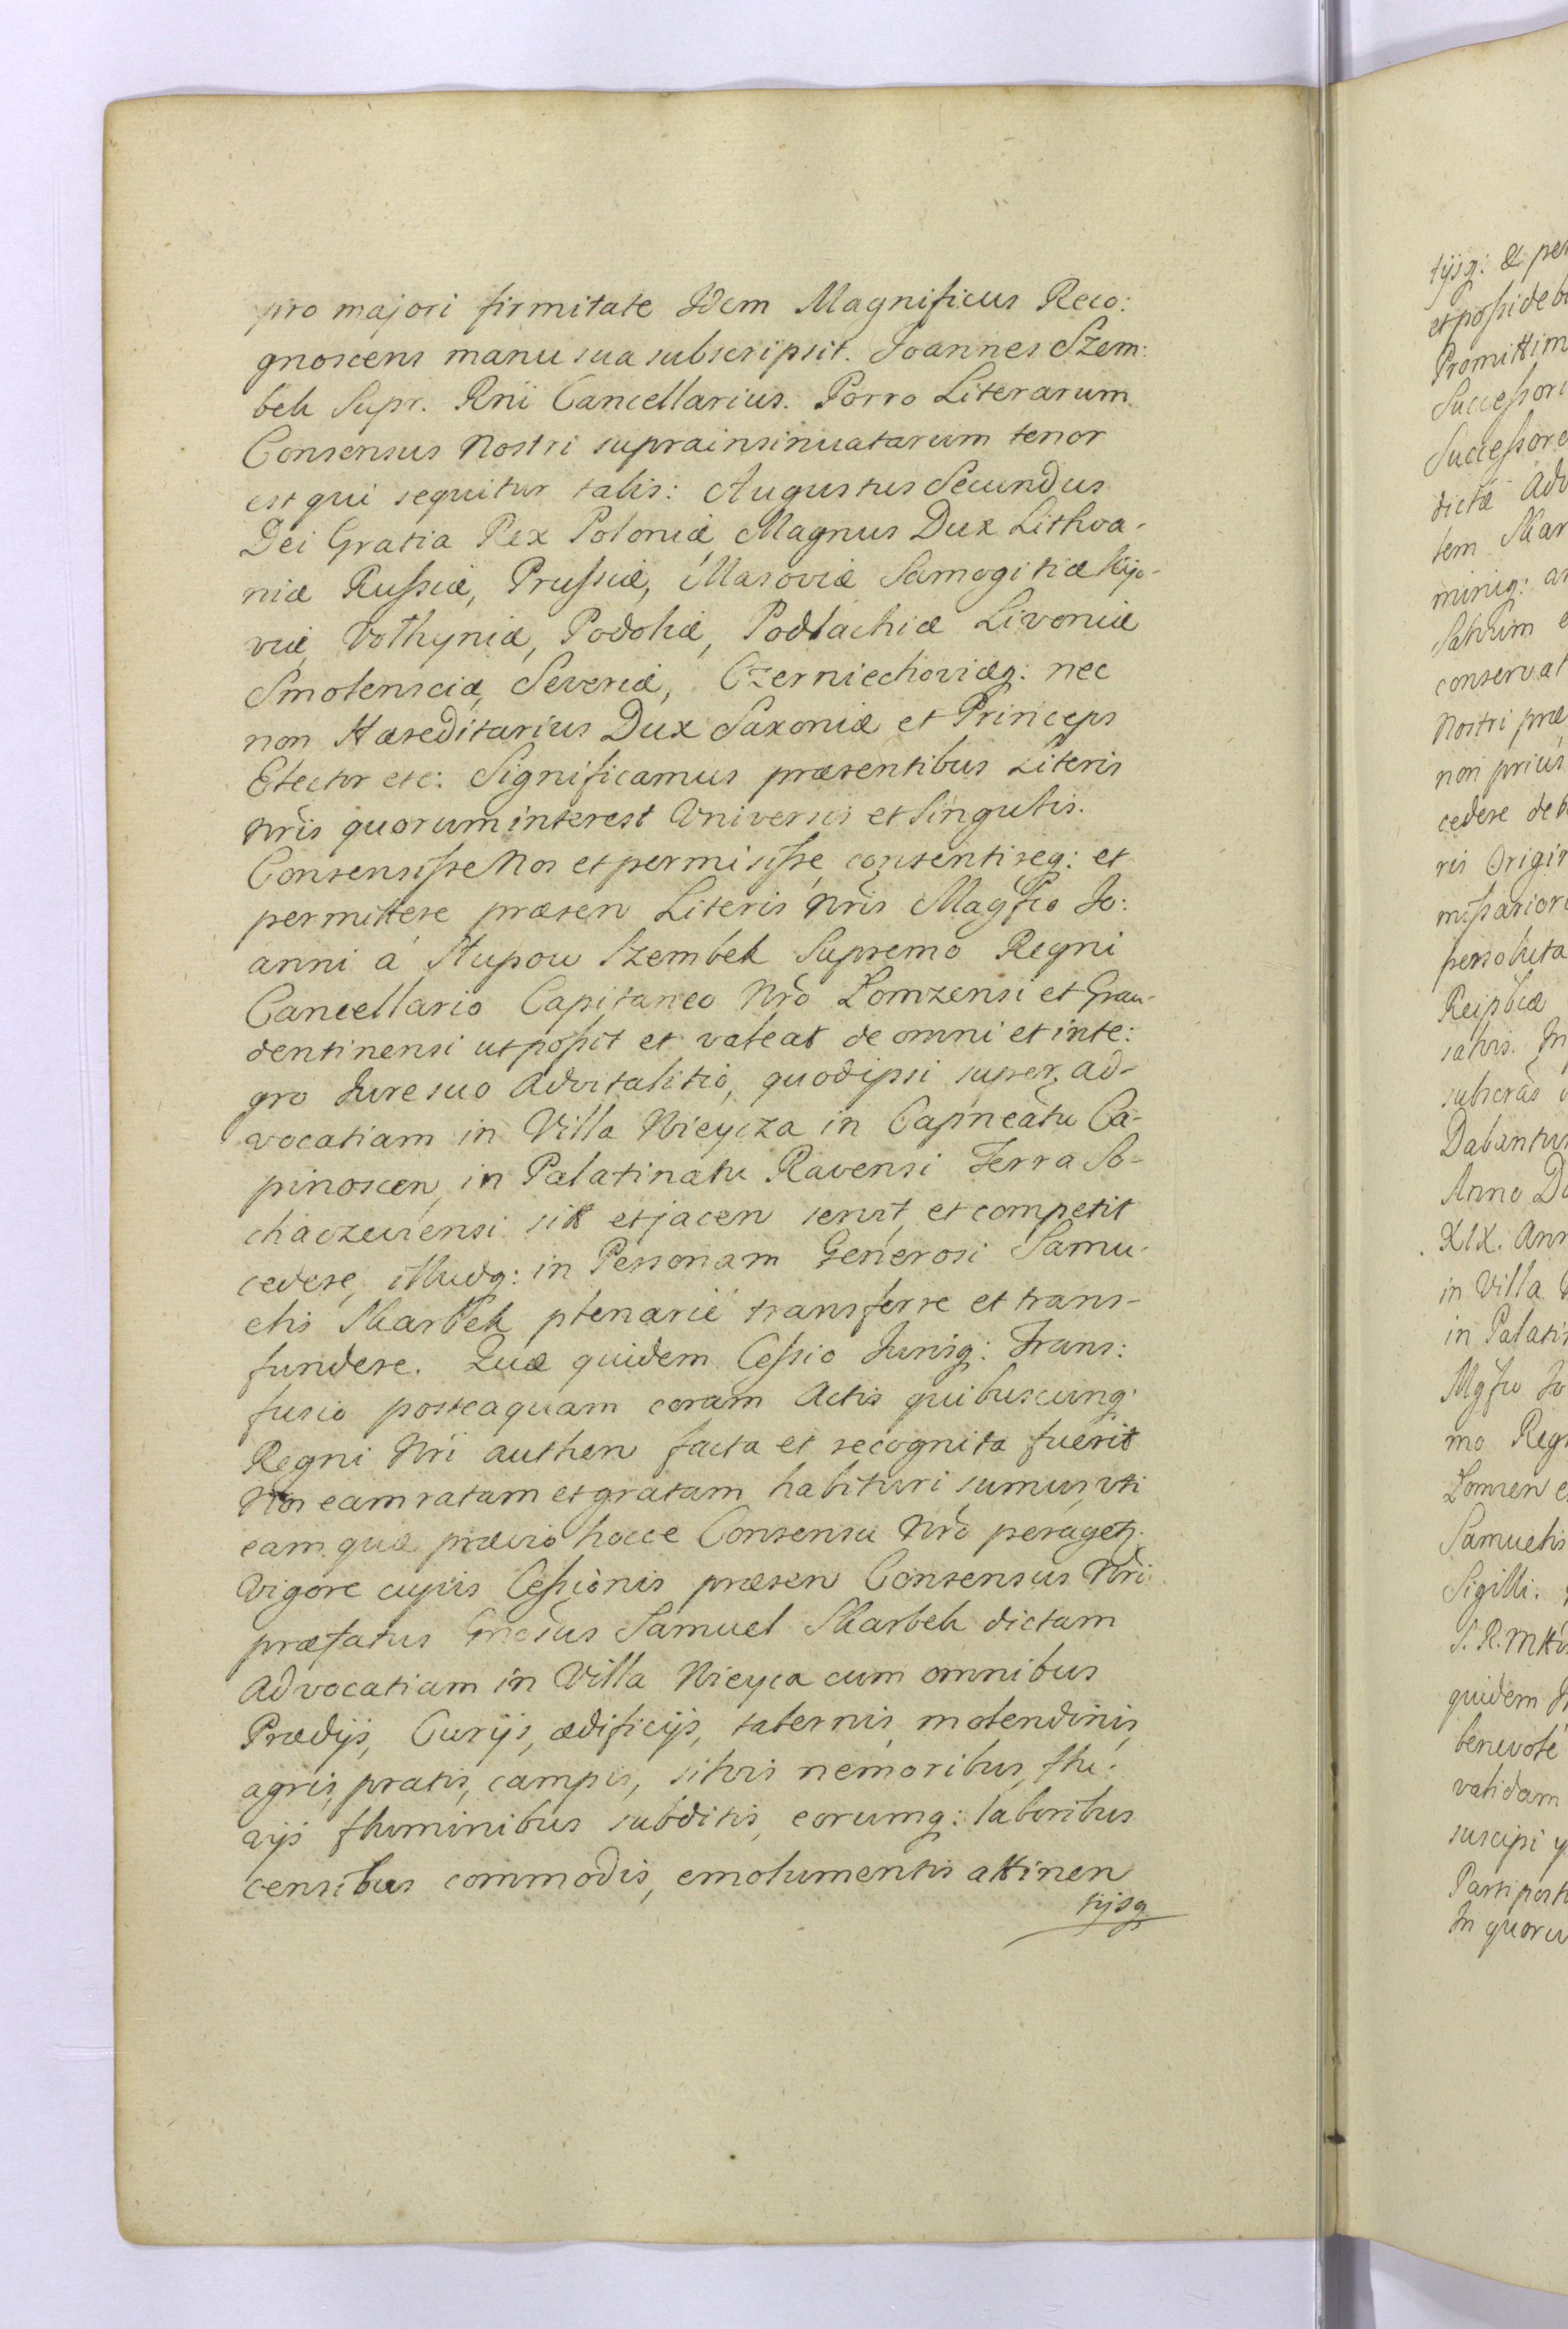 pro majori firmitate Idem Magnificus Reco:
gnoscens manu sua subscripsit. Joannes Szem:
bek Supr. Rnii Cancellarius. Porro Literarum
Consensus Nostri suprainsinuatarum tenor
est qui sequitur talis: Augustus Secundus
Dei Gratia Rex Poloniæ, Magnus Dux Lithva-
niæ Russiæ, Prussiæ, Masoviæ Samogitiæ Kijo-
viæ, Volhyniæ, Podoliæ, Podlachiæ Livoniæ
Smolensciæ, Severiæ, Czerniechoviæq: nec
non Hæreditarius Dux Saxoniæ et Princeps
Elector etc: Significamus præsentibus Literis
Nris quorum interest Universis et Singulis.
Consensisse Nos et permisisse, consentireq: et
permittere præsen Literis Nris Magfco Jo:
anni á Slupow Szembek Supremo Regni
Cancellario Capitaneo Nro Lomzensi et Grau-
dentinensi ut possit et valeat de omni et inte:
gro Jure suo Advitalitio, quod ipsi super Ad-
vocatiam in Villa Nieycza in Capneatu Ca-
pinoscen, in Palatinatu Ravensi Terra So-
chaczeviensi sit et jacen servit et competit
cedere, illudq: in Personam Generosi Samu-
elis Skarbek plenarié transferre et trans-
fundere. Quæ quidem Cessio Jurisq: Trans:
fusio posteaquam coram Actis quibuscunq:
Regni Nri authen facta et recognita fuerit
Nos eam ratam et gratam habituri sumus uti
eam quæ prævio hocce Consensu Nro peragetz.
Vigore cujus Cessionis præsen Consensus Nri
præfatus Gnosus Samuel Skarbek dictam
Advocatiam in Villa Nieyca cum omnibus
Prædijs, Curijs, ædificijs, tabernis, molendinis,
agris, pratis, campis, silvis nemoribus, flu:
vijs fluminibus subditis, eorumq: laboribus
censibus commodis, emolumentis attinen
tijsq
tijsq: &
et possideb
Promittim
Successori
Successore
dictæ Adv
tem Skar
minig: an
Salvum e
conservat
Nostri præ
non prius
cedere deb
ris Origin
missarior
persoluta
Reipbcæ
salvis. In
subscras
Dabantur
Anno Do
XIX. Ann
in Villa
in Palati
Mgfco Jo
mo Reg
Lomzen e
Samuelis
Sigilli.
S. R. Mtti
quidem
benevolé
validam
suscipi
Parti post
In quoru